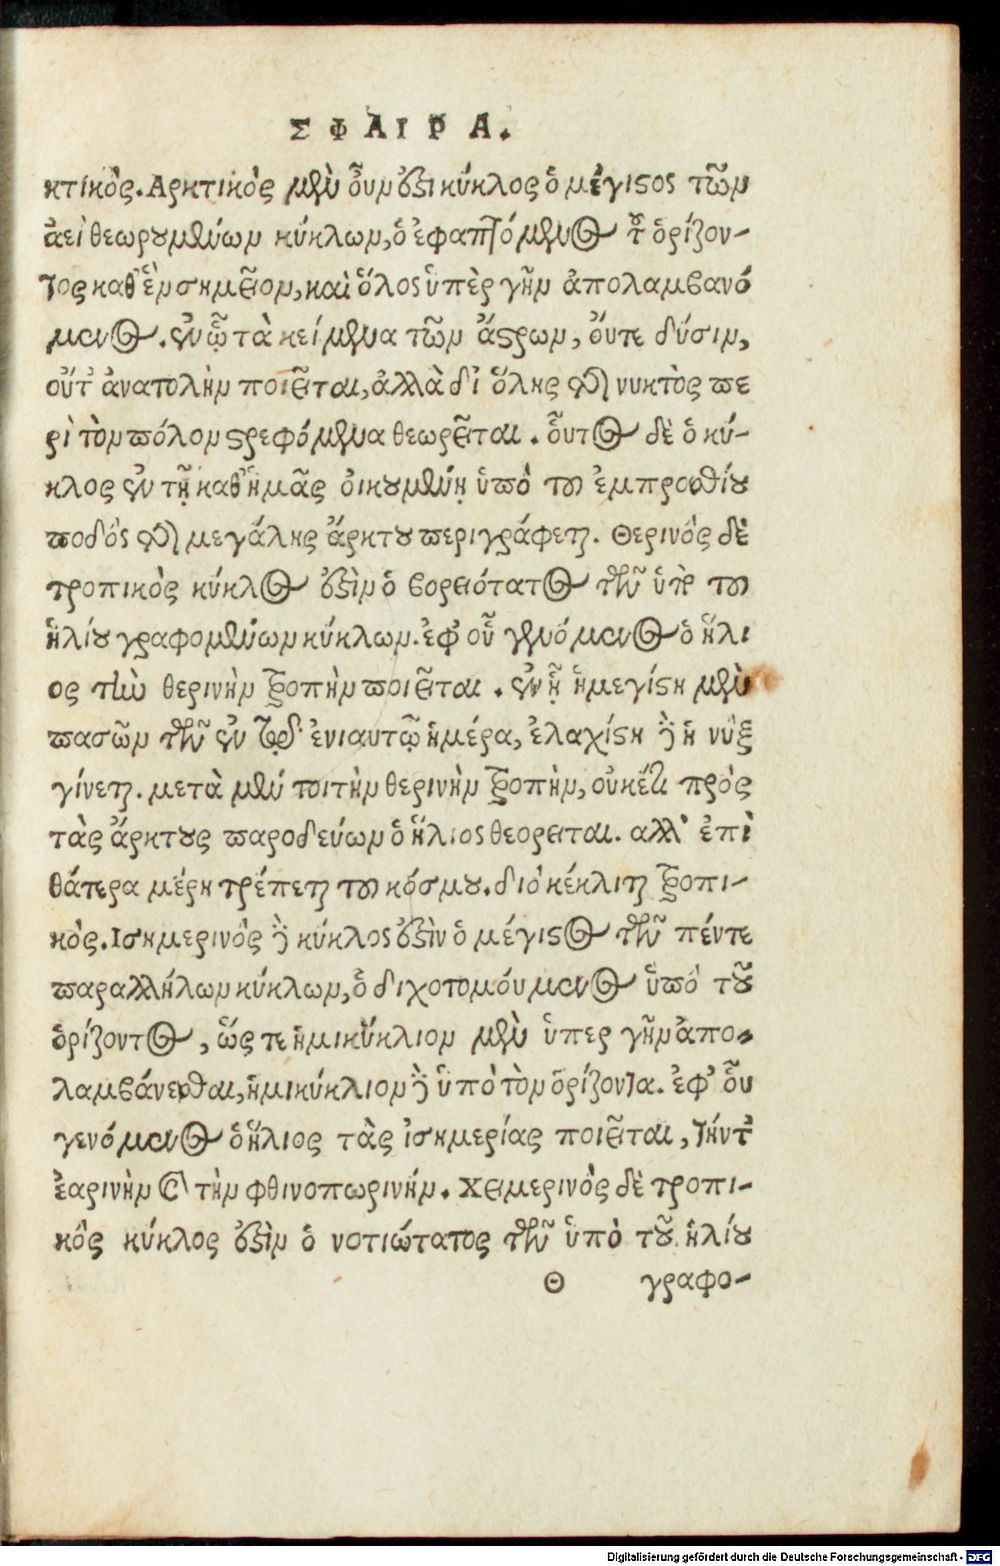 ΣΦΑΙΡΑ.
κτικὸς. Αρκτικὸς μὲν οὖν ὅξι κύκλος ὁ μέγιϛος τῶν
ἀεὶ θεωρουμένων κύκλων, ὁ ἐφαπτόμενος τ͂ ὁρίζον-
τος καθ' ἓν σημεῖον, καὶ ὅλος ὑπὲρ γῆν ἀπολαμβανό
μενος. ἐν ᾧ τὰ κείμενα τῶν ἄϛρων, ὄυτε δύσιν,
οὔτ' ἀνατολὴν ποιεῖται, ἀλλὰ δι' ὅλης τῆς νυκτὸς πε
ρὶ τὸν πόλον ϛρεφόμενα θεωρεῖται. οὗτος δὲ ὁ κύ-
κλος ἐν τῇ καθ' ἡμᾶς ὀικουμένῃ ὑπὸ του ἐμπροσθίου
ποδὸς τῆς μεγάλης ἄρκτου περιγράφεται. Θερινὸς δὲ
τροπικὸς κύκλος ἐϛὶν ὁ βορειότατος τῶν ὑπὸ του
ἡλίου γραφομένων κύκλων. ἐφ' οὗ γενόμενος ὁ ἥλι
ος τὴν θερινὴν τροπὴν ποιεῖται. ἐν ᾗ ἡ μεγίϛη μὲν
πασῶν τῶν ἐν τῷ ἐνιαυτῷ ἡμέρα, ἐλαχίϛη δὲ ἡ νὺξ
γίνεται. μετὰ μέν τοι τὴν θερινὴν τροπὴν, οὐκέτι πρὸς
τὰς ἄρκτους παροδεύων ὁ ἥλιος θεορειται. αλλ' ἐπὶ
θάτερα μέρη τρέπεται του κόσμου. διὸ κέκλιται τροπι-
κὸς. Ισημερινὸς δὲ κύκλος ἐϛὶν ὁ μέγιϛος τῶν πέντε
παραλλήλων κύκλων, ὁ διχοτομόυμενος ὑπὸ τοῦ
ὁρίζοντος, ὥς τε ἡμικύκλιον μὲν ὑπερ γῆν ἀπο-
λαμβάνεσθαι, ἡμικύκλιον δὲ ὑπὸ τὸν ὁρίζοντα. ἐφ' οὗ
γενόμενος ὁ ἥλιος τὰς ἰσημερίας ποιεῖται, τήν τ'
ἐαρινὴν καὶ τὴν φθινοπωρινήν. Χειμερινὸς δὲ τροπι-
κὸς κύκλος ἐϛὶν ὁ νοτιώτατος τῶν ὑπὸ τοῦ ἡλίου
Θ γραφο-
Digitalisierung gefördert durch die Deutsche Forschungsgemeinschaft - DFG